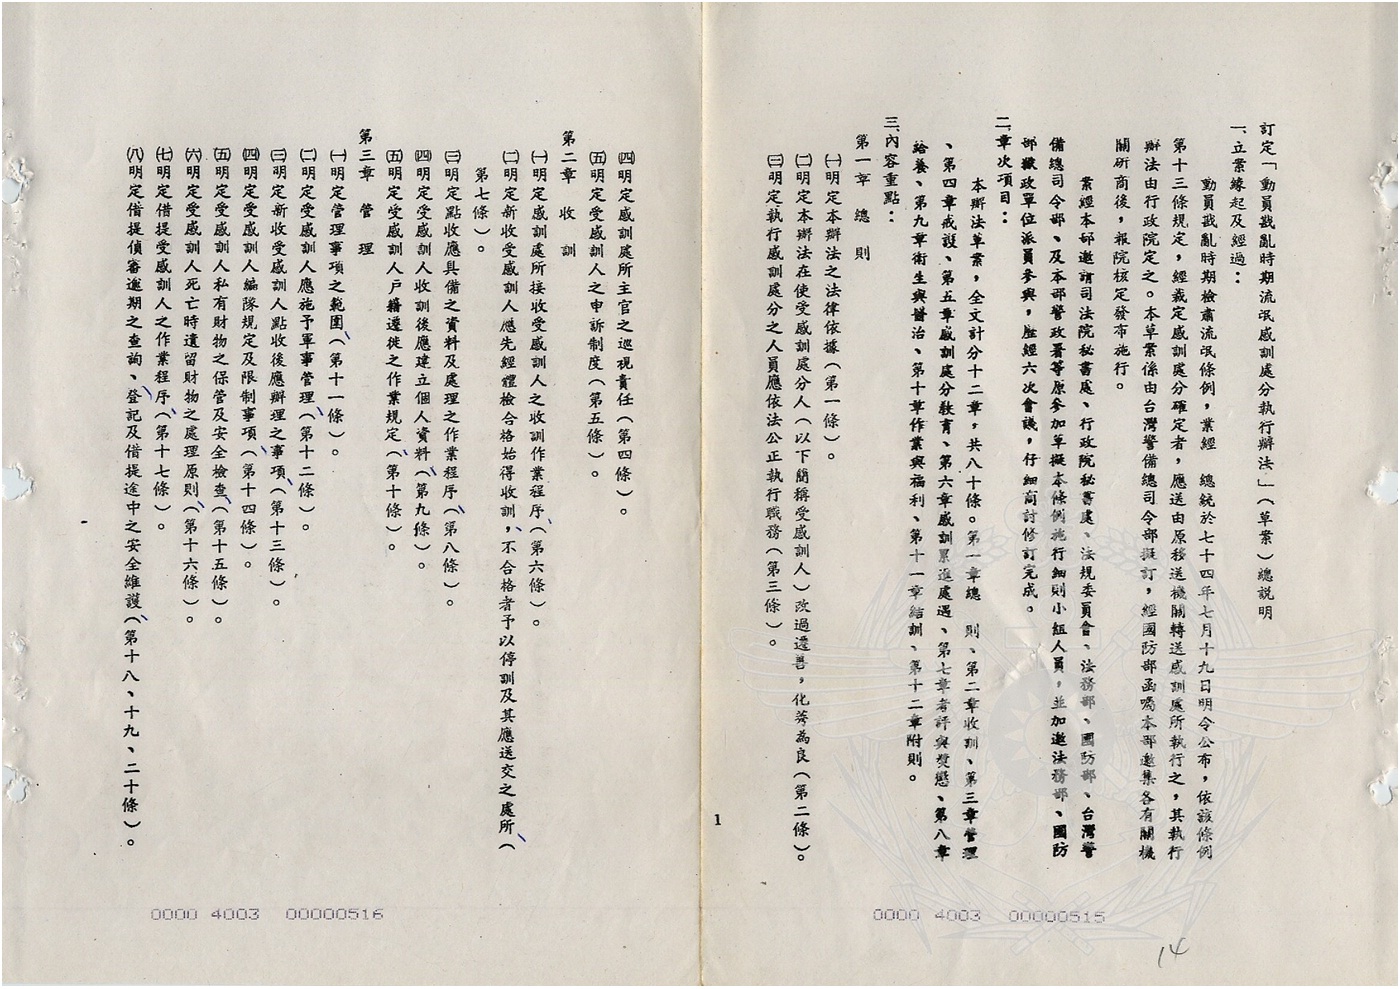 訂定「動員戡亂時期流氓感訓處分執行辦法」（草案）總說明
一、立案緣起及經過：
動員戡亂時期檢肅流氓條例，業經　總統於七十四年七月十九日明令公布，依該條例
第十三條規定，經裁定感訓處分確定者，應送由原移送機關轉送感訓處所執行之，其執行
辦法由行政院定之。本草案係由台灣警備總司令部擬訂，經國防部函囑本部邀集各有關機
關研商後，報院核定發布施行。
案經本部邀請司法院秘書處、行政院秘書處、法規委員會、法務部、國防部、台灣警
備總司令部、及本部警政署等原參加草擬本條例施行細則小組人員，並加邀法務部、國防
部獄政單位派員參與，歷經六次會議，仔細商討修訂完成。
二、章次項目：
本辦法草案，全文計分十二章，共八十條。第一章總　則、第二章收訓、第三章管理
、第四章戒護、第五章感訓處分教育、第六章感訓累進處遇、第七章考評與獎懲、第八章
給養、第九章衛生與醫治、第十章作業與福利、第十一章結訓、第十二章附則。
三、內容重點：
第一章　總　則
㈠明定本辦法之法律依據（第一條）。
㈡明定本辦法在使受感訓處分人（以下簡稱受感訓人）改過遷善，化莠為良（第二條）。
㈢明定執行感訓處分之人員應依法公正執行職務（第三條）。
1
0000 4003 00000515
14
㈣明定感訓處所主官之巡視責任（第四條）。
㈤明定受感訓人之申訴制度（第五條）。
第二章　收　訓
㈠明定感訓處所接收受感訓人之收訓作業程序（第六條）。
㈡明定新收受感訓人應先經體檢合格始得收訓，不合格者予以停訓及其應送交之處所（
第七條）。
㈢明定點收應具備之資料及處理之作業程序（第八條）。
㈣明定受感訓人收訓後應建立個人資料（第九條）。
㈤明定受感訓人戶籍遷徙之作業規定（第十條）。
第三章　管　理
㈠明定管理事項之範圍（第十一條）。
㈡明定受感訓人應施予軍事管理（第十二條）。
㈢明定新收受感訓人點收後應辦理之事項（第十三條）。
㈣明定受感訓人編隊規定及限制事項（第十四條）。
㈤明定受感訓人私有財物之保管及安全檢查（第十五條）。
㈥明定受感訓人死亡時遺留財物之處理原則（第十六條）。
㈦明定借提受感訓人之作業程序（第十七條）。
㈧明定借提偵審逾期之查詢、登記及借提途中之安全維護（第十八、十九、二十條）。
0000 4003 00000516